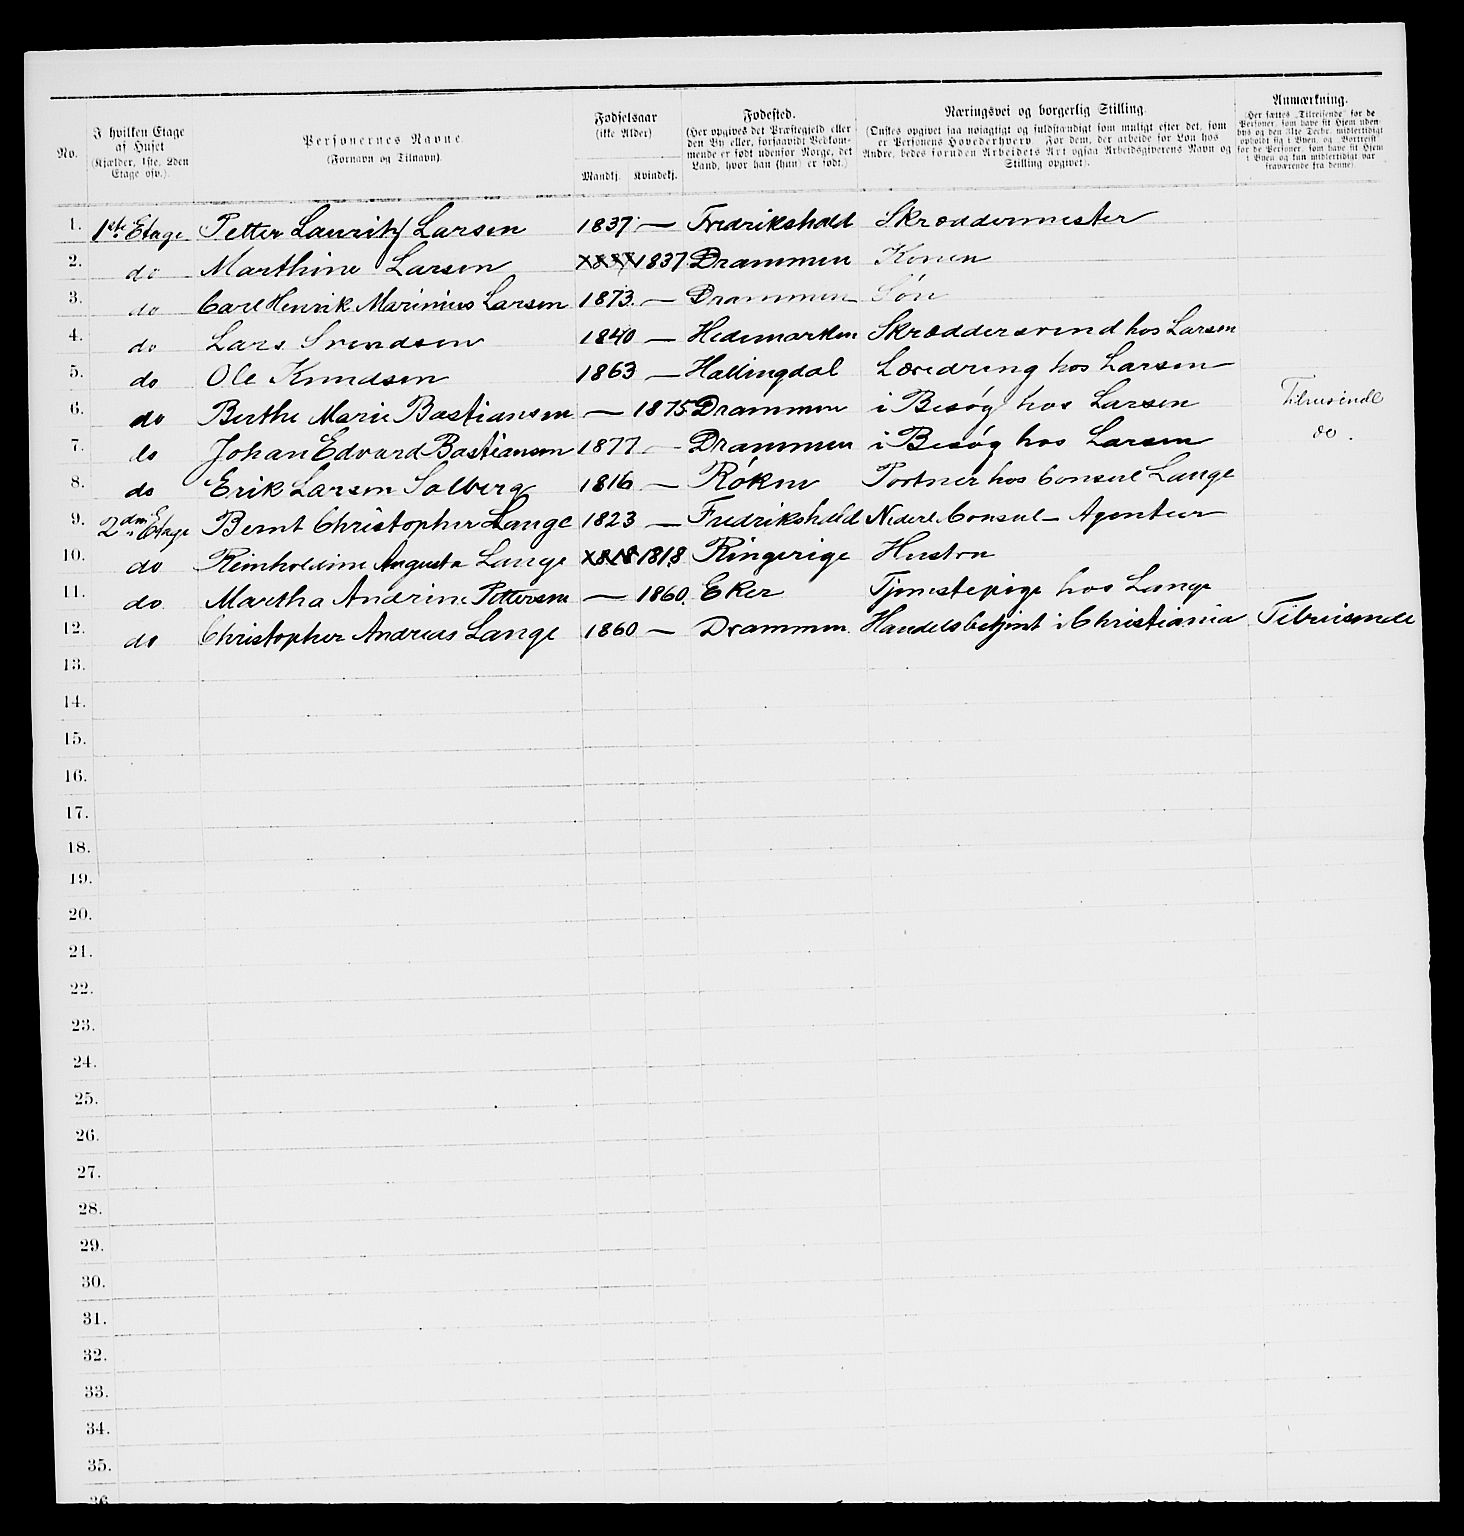 No. | I hvilken Etage af Huset (Kjælder, 1ste, 2den Etage osv.). | Personernes Navne. (Fornavn og Tilnavn). | Fødselsaar (ikke Alder) Mandkj. | Kvindekj. | Fødested. (Her opgives det Præstegjeld eller den By eller, forsaavidt Vedkommende er født udenfor Norge, det Land, hvor han (hun) er født.) | Næringsvei og borgerlig Stilling. (Ønskes opgivet saa nøiagtigt og fuldstændigt som muligt efter det, som er Personens Hovederhverv. For dem, der arbeide for Løn hos Andre, bedes foruden Arbeidets Art ogsaa Arbeidsgiverens Navn og Stilling opgivet). | Anmærkning. (Her sættes „Tilreisende" for de Personer, som have sit Hjem udenbys og den 31te Decbr. midlertidigt opholdt sig i Byen, og „Bortreist" for de Personer, som have sit Hjem i Byen og kun midlertidigt var fraværende fra denne).
1. 1ste Etage Petter Lauritz Larsen 1837 — Fredrikshald Skræddermester
2. do Marthine Larsen 1837 1837 Drammen Konen
3. do Carl Henrik Marinius Larsen 1873. — Drammen Søn
4. do Lars Svendsen 1840 — Hedemarken Skræddersvend hos Larsen
5. do Ole Knudsen 1863 — Hallingdal Læredreng hos Larsen
6. do Berthe Marie Bastiansen — 1875 Drammen i Besøg hos Larsen Tilreisende
7. do Johan Edvard Bastiansen 1877 — Drammen i Besøg hos Larsen do.
8. do Erik Larsen Solberg 1816 — Røken Portner hos Consul Lange
9. 2den Etage Bernt Christopher Lange 1823 — Fredrikshald Nederl. Consul — Agentur
10. do Reinholdine Augusta Lange 1818 1818 Ringerige Hustru
11. do Martha Andrine Pettersen — 1860. Eker Tjenestepige hos Lange
12. do Christopher Andreas Lange 1860 — Drammen Handelsbetjent i Christiania Tilreisende
13.
14.
15.
16.
17.
18.
19.
20.
21.
22.
23.
24.
25.
26.
27.
28.
29.
30.
31.
32.
33.
34.
35.
36